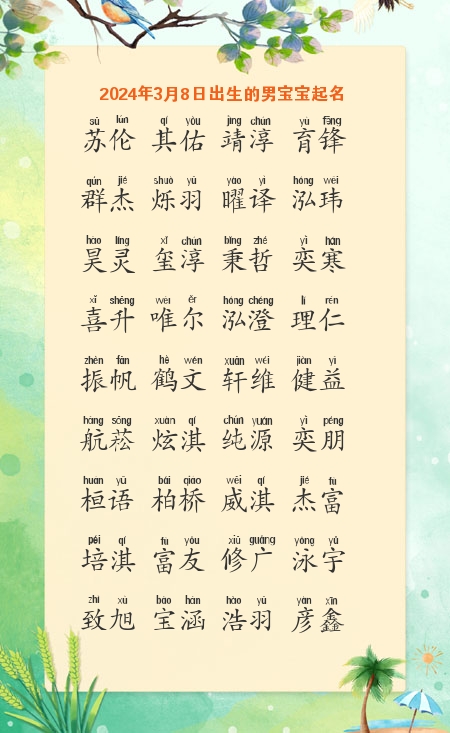 2024年3月8日出生的男宝宝起名
sū lún qí yòu jìng chún yù fēng
苏伦 其佑 靖淳 育锋
qún jié shuò yǔ yào yì hóng wěi
群杰 烁羽 曜译 泓玮
hào líng xǐ chún bǐng zhé yì hán
昊灵 玺淳 秉哲 奕寒
xǐ shēng wéi ěr hóng chéng lǐ rén
喜升 唯尔 泓澄 理仁
zhèn fān hè wén xuān wéi jiàn yì
振帆 鹤文 轩维 健益
háng sōng xuàn qí chún yuán yì péng
航菘 炫淇 纯源 奕朋
huán yǔ bǎi qiáo wēi qí jié fù
桓语 柏桥 威淇 杰富
péi qí fù yǒu xiū guǎng yǒng yǔ
培淇 富友 修广 泳宇
zhì xù bǎo hán hào yǔ yàn xīn
致旭 宝涵 浩羽 彦鑫